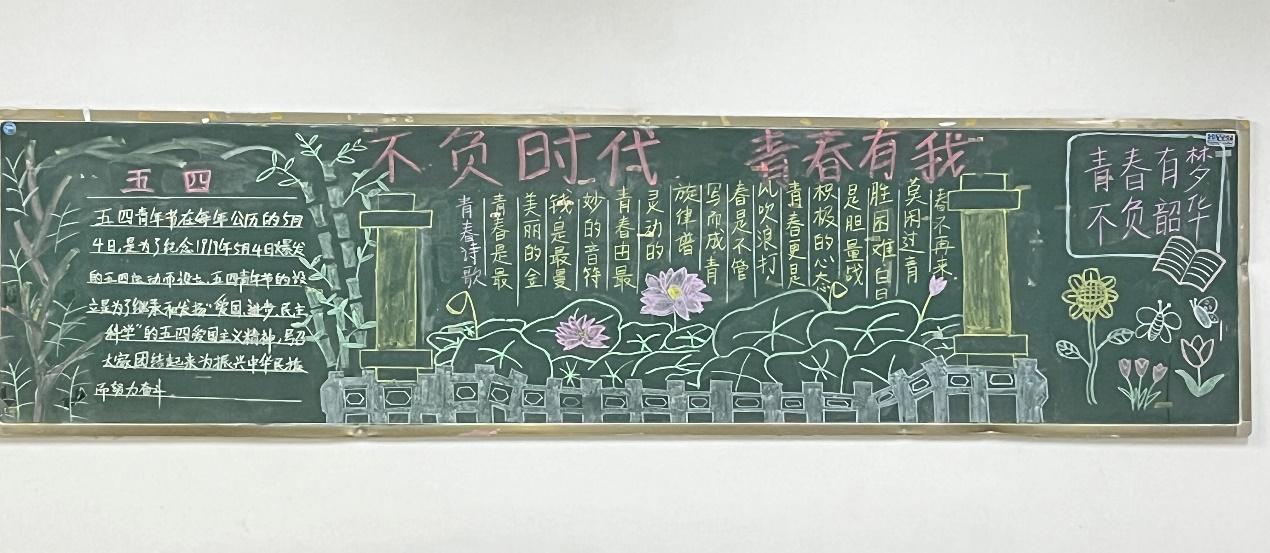 不负时代 青春有我
五四
五四青年节在每年公历的5月
4日,是为了纪念1919年5月4日爆发
的五四运动而设立,五四青年节的设
立是为了继承和发扬“爱国,进步,民主
科学”的五四爱国主义精神,号召
大家团结起来为振兴中华民族
而努力奋斗
青春诗歌
青春是最
美丽的金
钱是最曼
妙的音符
青春由最
灵动的
旋律谱
写而成青
春是不管
吹浪打
青春更是
积极的心态
是胆量战
胜困难白日
莫闲过青
春不再来.
青春有梦
不负韶华